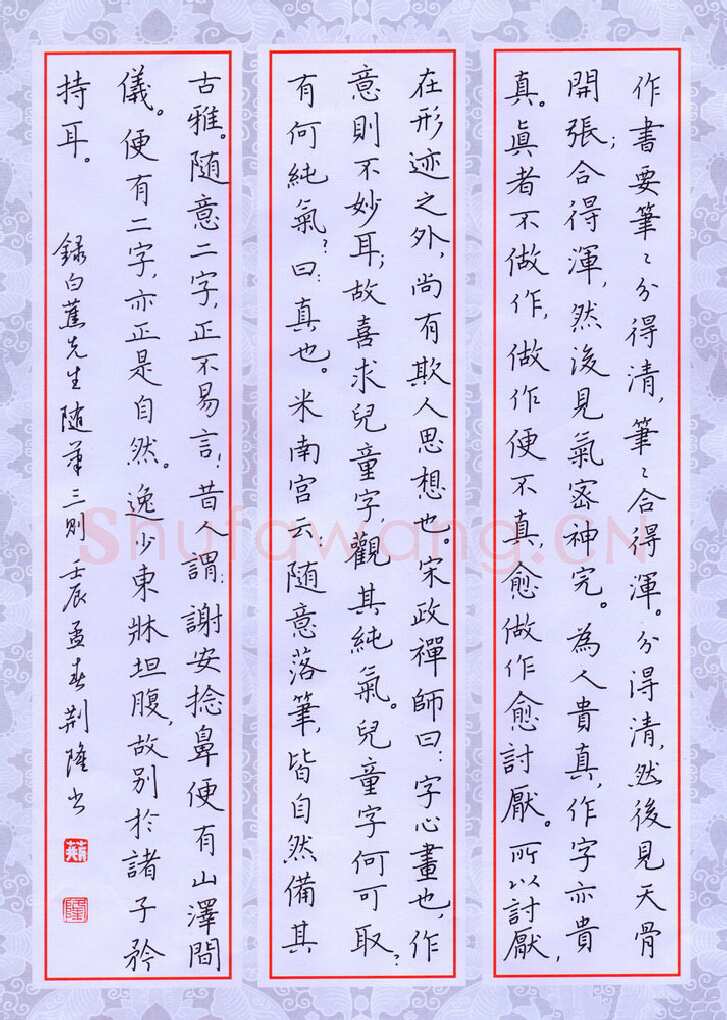 作書要筆〻分得清，筆〻合得渾。分得清，然後見天骨
開張；合得渾，然後見氣密神完。為人貴真，作字亦貴
真。眞者不做作，做作便不真，愈做作愈討厭。所以討厭，
在形迹之外，尚有欺人思想也。宋政禪師曰：字心畫也，作
意則不妙耳；故喜求兒童字，觀其純氣。兒童字何可取？
有何純氣？曰：真也。米南宫云：随意落筆，皆自然備其
古雅。随意二字，正不易言！昔人謂：謝安捻鼻便有山澤間
儀。便有二字，亦正是自然。逸少東牀坦腹，故别於諸子矜
持耳。
録白蕉先生随筆三則 壬辰孟春荆隆书
Shufawang.CN